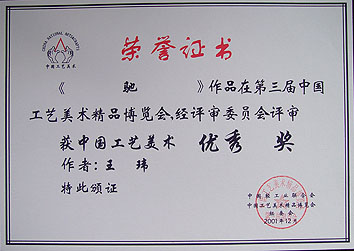 CHINA NATIONAL ARTS&CRAFTS
中国工艺美术
荣誉证书
《 馳 》作品在第三届中国
工艺美术精品博览会,经评审委员会评审
获中国工艺美术 优秀 奖
作者:王 玮
特此颁证
中国轻工业联合会
中国工艺美术精品博览会
组委会
2001年12月